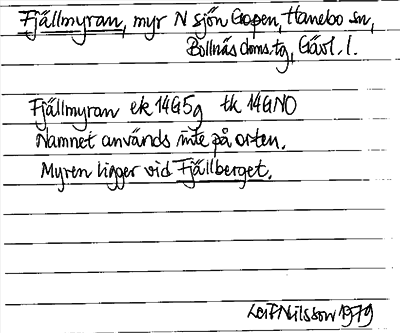 Fjällmyran, myr N sjön Gopen, Hanebo sn,
Bollnäs doms.tg, Gävl. l.
Fjällmyran ek 14G5g tk 14GNO
Namnet används inte på orten.
Myren ligger vid Fjällberget.
Leif Nilsson 1979